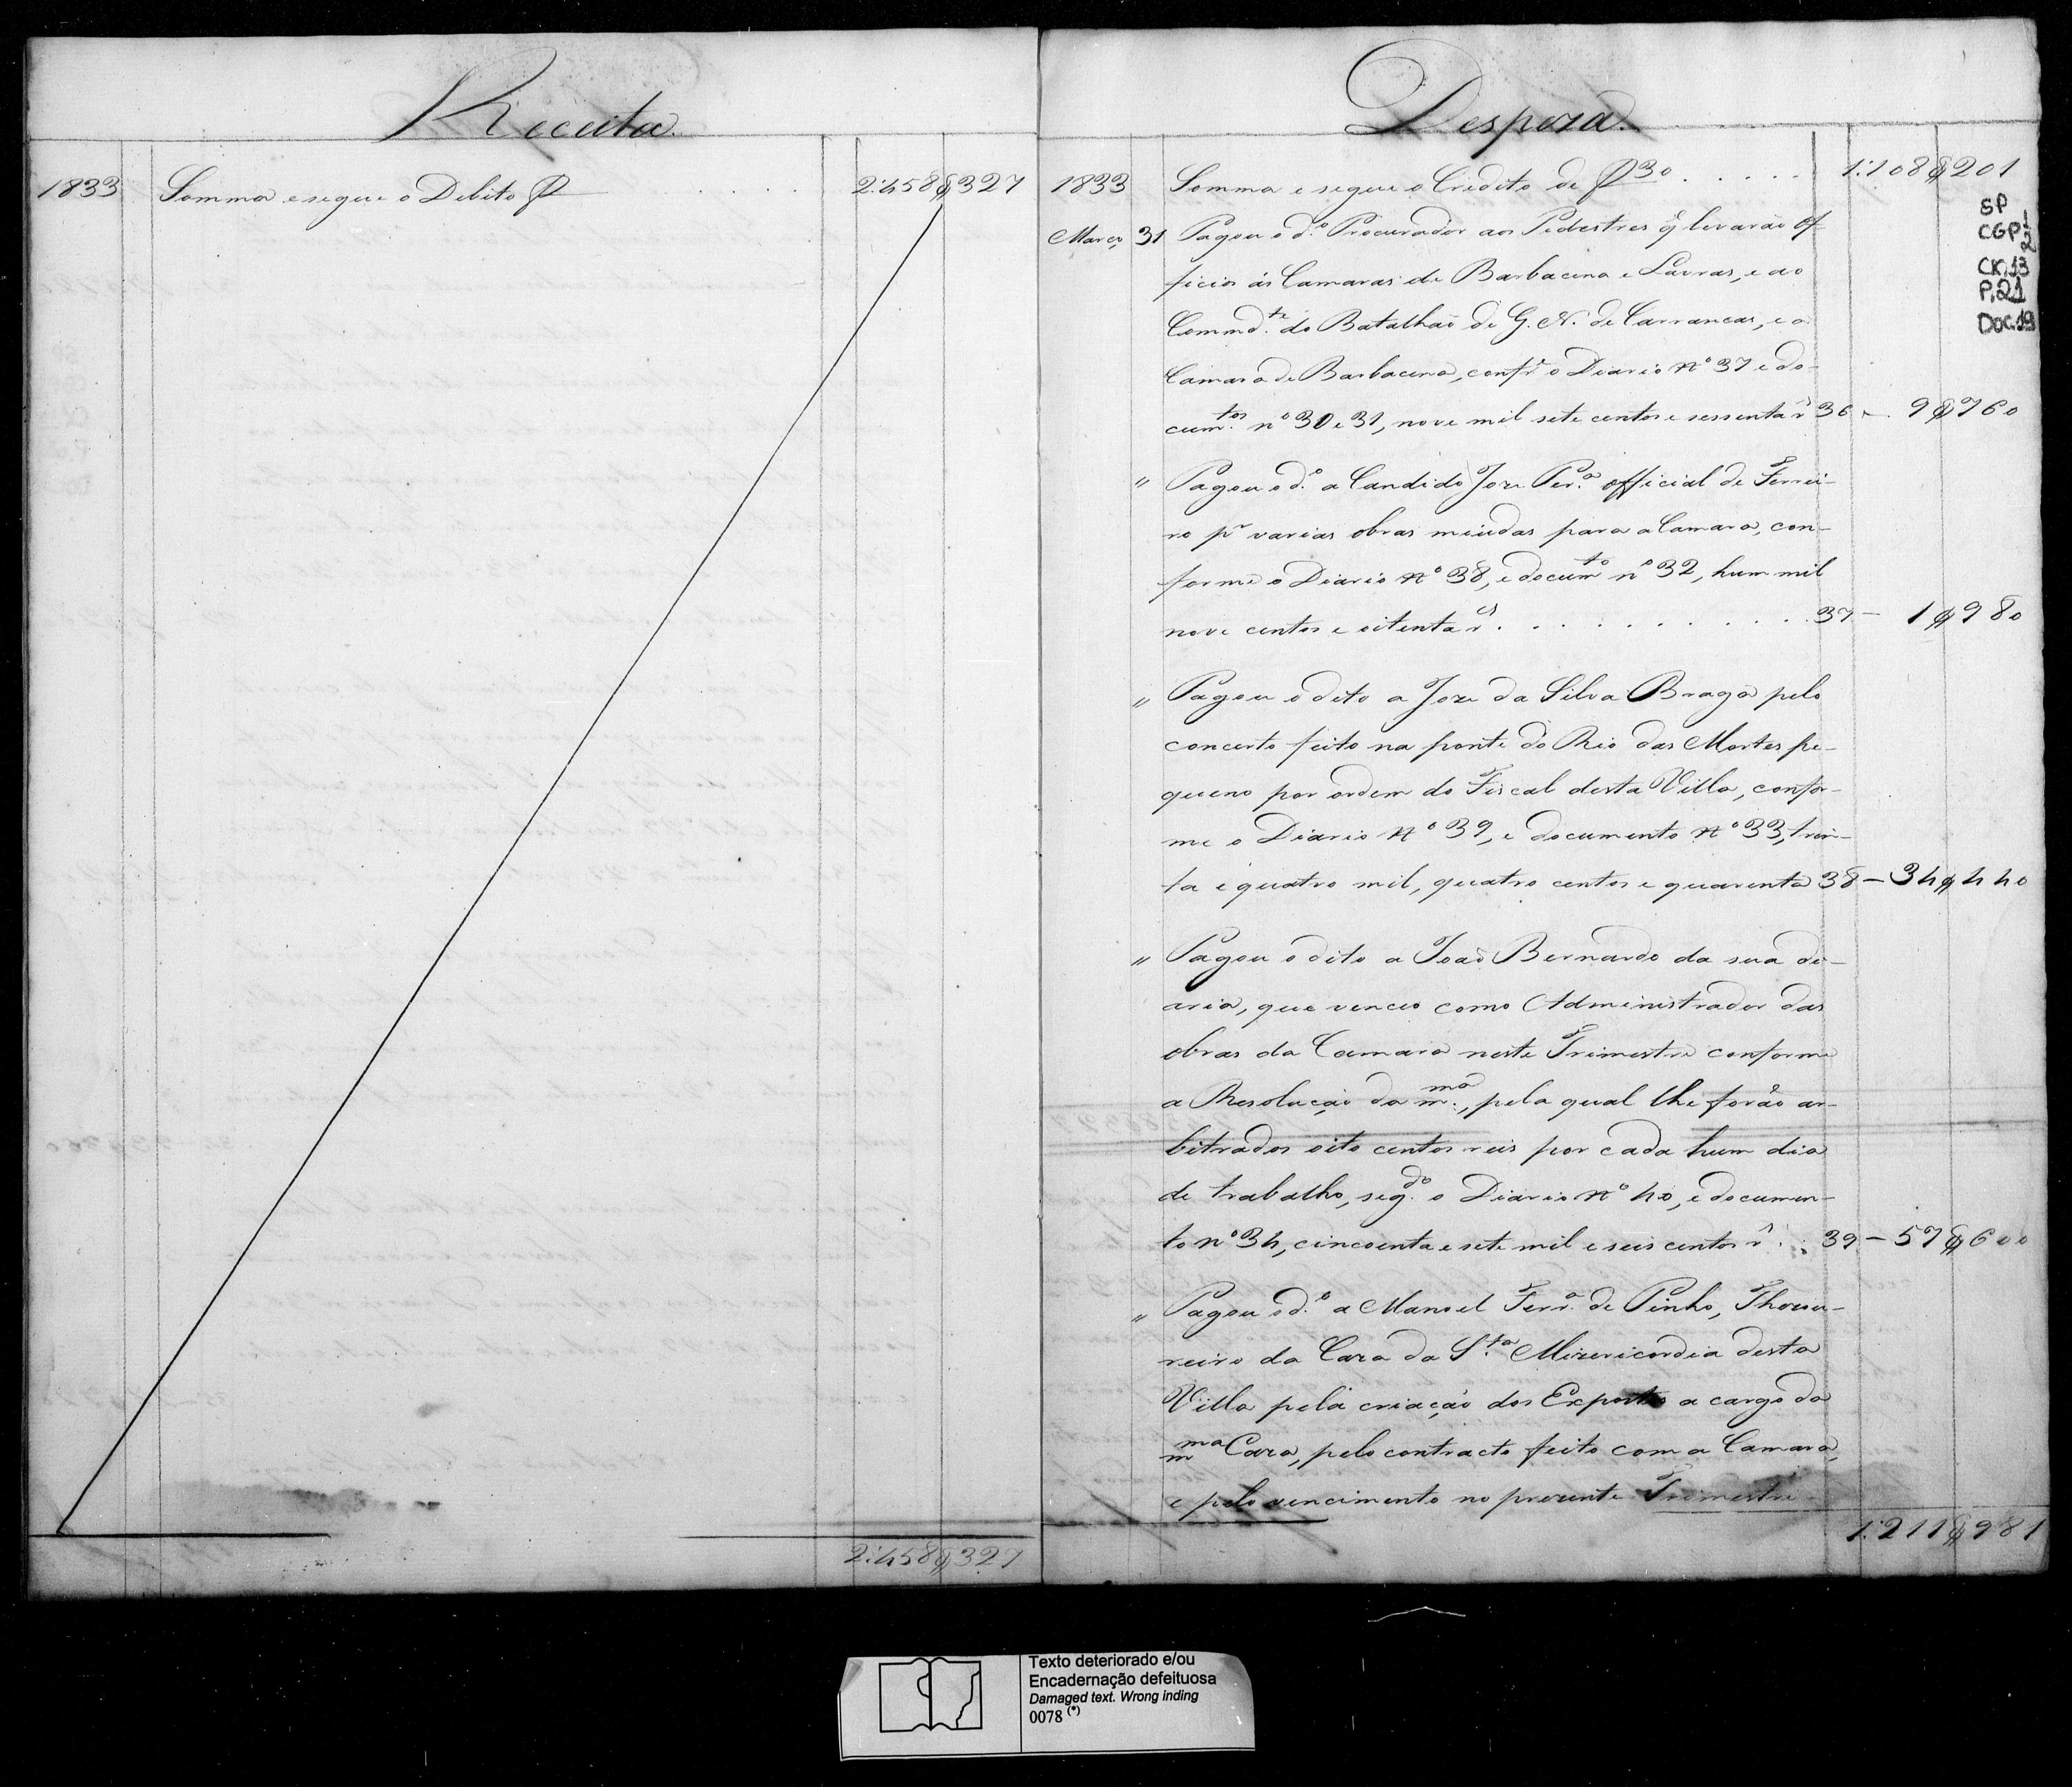 Receita.
1833 Somma e segue o Debito F . . . . 2:458$327
2:458$327
Despeza.
1833 Somma e segue o Credito de F 30 . . . . . 1:108$201
SP
CGP 1
2
CX.13
P.21
DOC.19
Março 31 Pagou o d.o Procurador aos Pedestres q̃ levarão of-
ficios ás Camaras de Barbacena e Lavras, e ao
Commd.te do Batalhão de G. N. de Carrancas, e a
Camara de Barbacena, confr.e o Diario No 37 e do-
cum.tos no 30 e 31, nove mil sete centos e sessenta rs 36 - 9$760
" Pagou o d.o a Candido Joze Per.a official de Ferrei-
ro pr varias obras miudas para a Camara, con-
forme o Diario No 38, e docum.to no 32, hum mil
nove centos e oitenta rs . . . . . . . . . . . 37 - 1$980
" Pagou o dito a Joze da Silva Braga pelo
concerto feito na ponte do Rio das Mortes pe-
queno por ordem do Fiscal desta Villa, confor-
me o Diario No 39, e documento No 33, trin-
ta e quatro mil, quatro centos e quarenta 38 - 34$440
" Pagou o dito a João Bernardo da sua di-
aria, que venceo como Administrador das
obras da Camara neste Trimestre conforme
a Resolução da m.ma, pela qual lhe forão ar-
bitrados oito centos reis por cada hum dia
de trabalho, seg.do o Diario No 40, e documen-
to no 34, cincoenta e sete mil e seis centos rs . . 39 - 57$600
" Pagou o d.o a Manoel Ferr.a de Pinho, Thezou-
reiro da Caza da S.ta Mizericordia desta
Villa pela criação dos Expostos a cargo da
mma Caza, pelo contracto feito com a Camara,
e pelo vencimento no prezente Trimestre
1:211$981
Texto deteriorado e/ou
Encadernação defeituosa
Damaged text. Wrong inding
0078 (*)